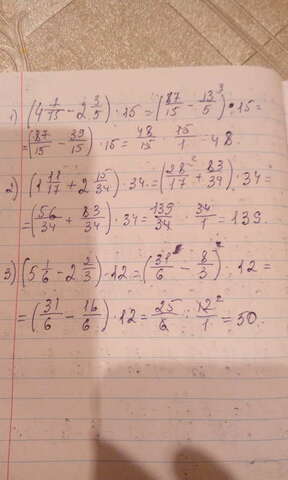 1) (4 7/15 - 2 3/5) · 15 = (87/15 - 13/5 ³) · 15 =
= (87/15 - 39/15) · 15 = 48/15 · 15/1 = 48
2) (1 11/17 + 2 15/34) · 34 = (28/17 ² + 83/34) · 34 =
= (56/34 + 83/34) · 34 = 139/34 · 34/1 = 139.
3) (5 1/6 - 2 2/3) · 12 = (31/6 - 8/3 ²) · 12 =
= (31/6 - 16/6) · 12 = 25/6 · 12²/1 = 30.